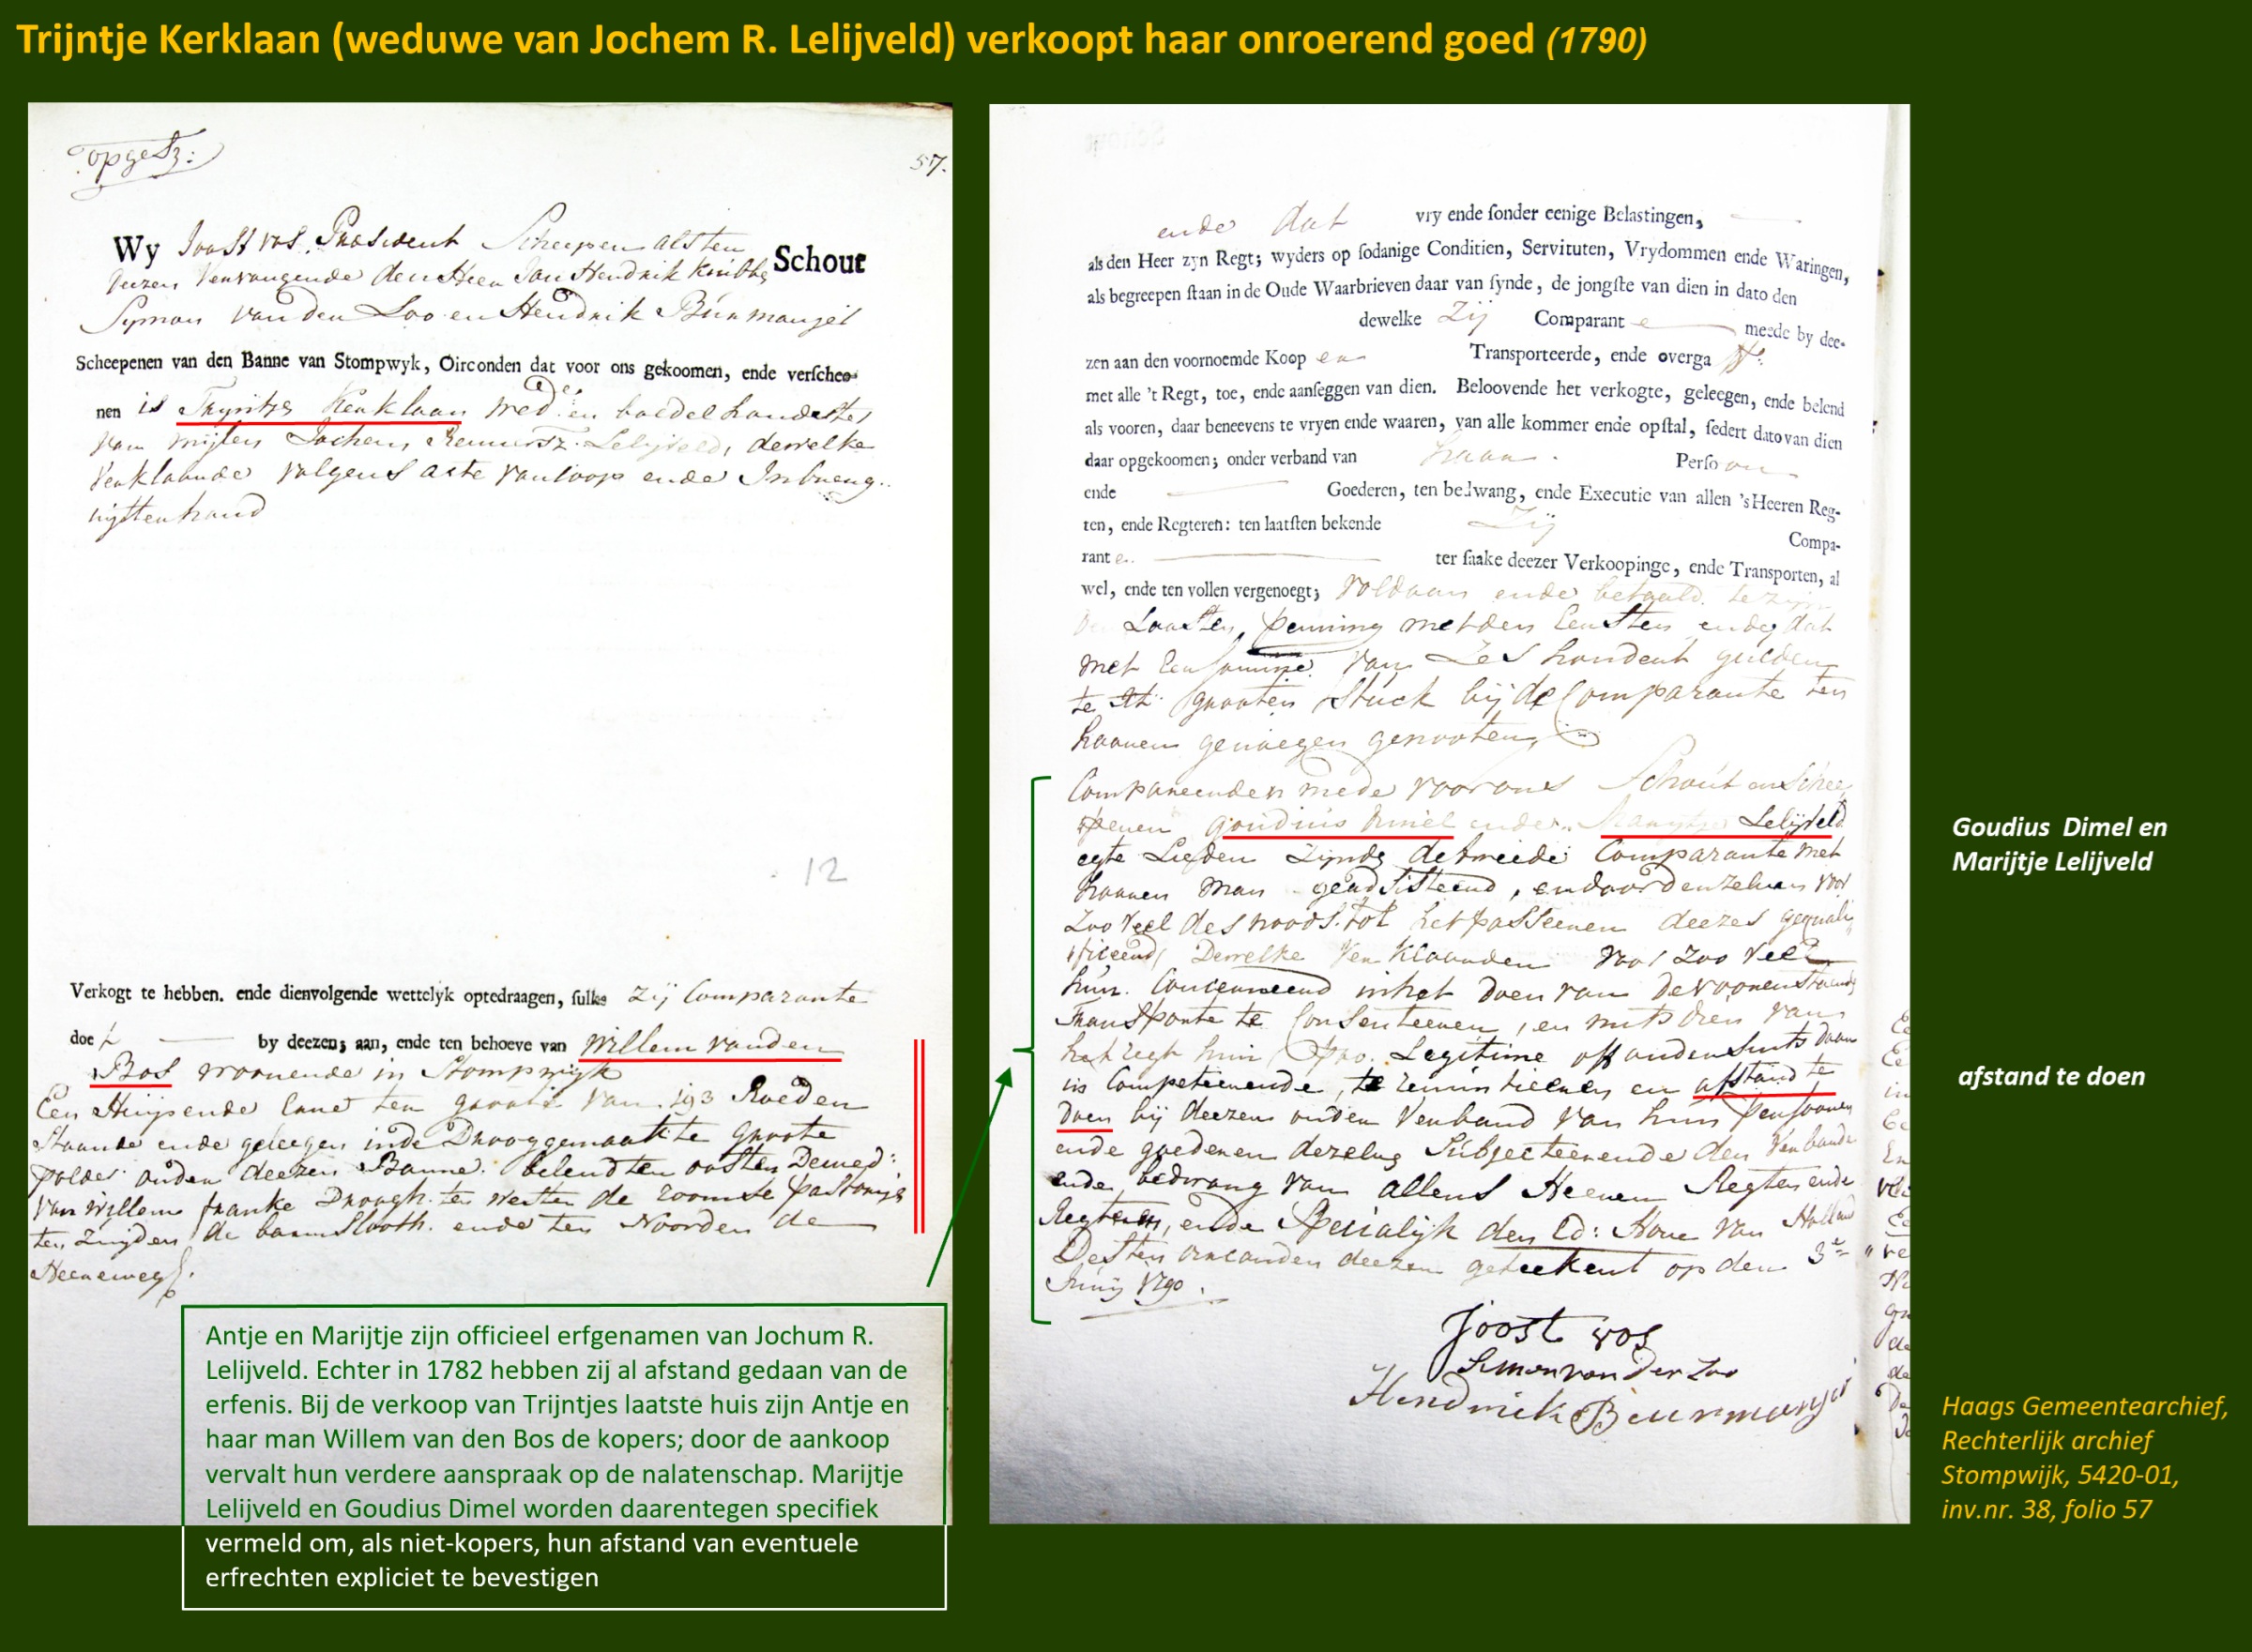 Trijntje Kerklaan (weduwe van Jochem R. Lelijveld) verkoopt haar onroerend goed (1790)
opgesz:
57.
Wy Joost vos, President Scheepen als ten Schout
deezen vervangende den Heer Jan Hendrik
Symon van den Loo en Hendrik Buurmanjel
Scheepenen van den Banne van Stompwyk, Oirconden dat voor ons gekoomen, ende verschee-
nen is Tryntje Kerklaan wede. en boedelhoudster
van wijlen Jochem Lelijveld, dewelke
verklaarde volgens acte van koop ende Inbreng
uijtterhand
12
Verkogt te hebben. ende dienvolgende wettelyk optedraagen, sulks zij Comparante
doet by deezen; aan, ende ten behoeve van Willem van den
Bos woonende in Stompwijk
Een Huijs ende lane ten groote van 193 Roeden
staande ende geleegen inde Drooggemaakte Groote
polder onder deezen Banne. belend ten oosten Dewed:
van Willem franke Droogh. ten westen de roomse pastorije
ten Zuijden de bannslooth. ende ten Noorden de
Heereweg.
Antje en Marijtje zijn officieel erfgenamen van Jochum R.
Lelijveld. Echter in 1782 hebben zij al afstand gedaan van de
erfenis. Bij de verkoop van Trijntjes laatste huis zijn Antje en
haar man Willem van den Bos de kopers; door de aankoop
vervalt hun verdere aanspraak op de nalatenschap. Marijtje
Lelijveld en Goudius Dimel worden daarentegen specifiek
vermeld om, als niet-kopers, hun afstand van eventuele
erfrechten expliciet te bevestigen
ende dat vry ende sonder eenige Belastingen,
als den Heer zyn Regt; wyders op sodanige Conditien, Servituten, Vrydommen ende Waringen,
als begreepen staan in de Oude Waarbrieven daar van synde, de jongste van dien in dato den
dewelke Zij Comparante meede by dee-
zen aan den voornoemde Koop er Transporteerde, ende overgaff.
met alle 't Regt, toe, ende aanseggen van dien. Beloovende het verkogte, geleegen, ende belend
als vooren, daar beneevens te vryen ende waaren, van alle kommer ende opstal, sedert dato van dien
daar opgekoomen; onder verband van haar Persoon
ende Goederen, ten bedwang, ende Executie van allen 's Heeren Reg-
ten, ende Regteren: ten laatsten bekende Zij Compa-
rante ter saake deezer Verkoopinge, ende Transporten, al
wel, ende ten vollen vergenoegt; voldaan ende betaald te zijn
De Laasten penning metden Eersten ende dat
met Een somme van Zes hondert gulden
te grooten Stuck bij de Comparante ten
haaren genoegen genooten
Compareerden mede voor ons Schout en Schee
penen Goudius Dimel ende Marijtje Lelijveld
egte Lieden Zijnde de tweede Comparante met
haaren man geadsisteerd, en door denzelven voor
zoo veel des noods tot het passeeren deezes gequali
ficeerd, Dewelke verklaarden voor zoo veel
hun Concerneerd in het doen van de voorenstaande
Transporte te Consenteeren, en mits dien van
het regt hun pro. Legitime off andersints daar
in Competeerende, te renuntieeren en afstand te
doen bij deezen onder verband van hun persoonen
ende goederen dezelve Subjecteerende den verbande
ende bedwang van allens Heeren Regten ende
Regteren, ende Specialijk den Ed: Hove van Holland
Desten oirconden deezen geteekent op den 3e
Junij 1790.
Joost vos
Simon van der Loo
Hendrick Buurmanjel
Goudius Dimel en
Marijtje Lelijveld
afstand te doen
Haags Gemeentearchief,
Rechterlijk archief
Stompwijk, 5420-01,
inv.nr. 38, folio 57